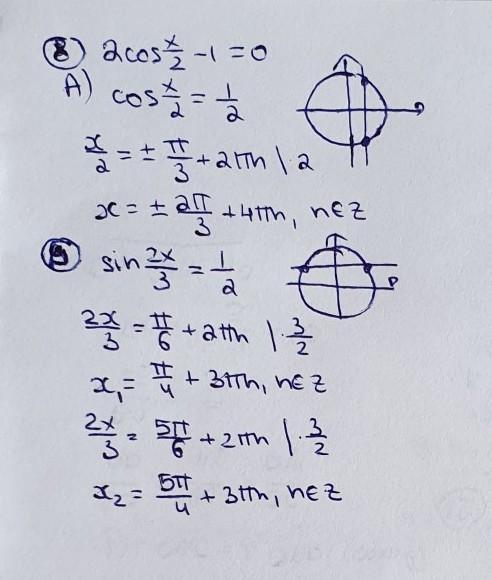 8) 2cos x/2 - 1 = 0
A) cos x/2 = 1/2
x/2 = ± π/3 + 2πn | 2
x = ± 2π/3 + 4πn, n∈Z
sin 2x/3 = 1/2
2x/3 = π/6 + 2πn | · 3/2
x₁ = π/4 + 3πn, n∈Z
2x/3 = 5π/6 + 2πn | · 3/2
x₂ = 5π/4 + 3πn, n∈Z